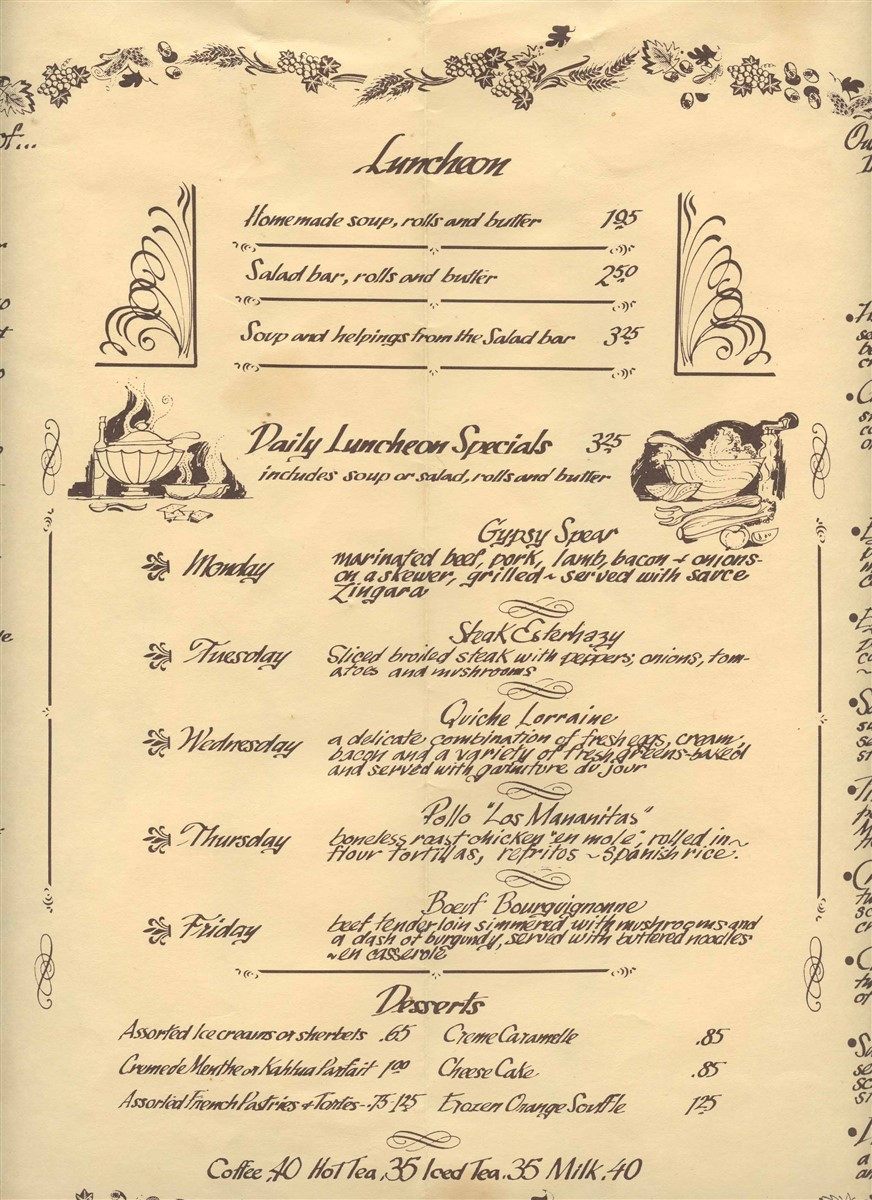 of...
Luncheon
Homemade soup, rolls and butter 1.95
Salad bar, rolls and butter 2.50
Soup and helpings from the Salad bar 3.25
Daily Luncheon Specials 3.25
includes soup or salad, rolls and butter
Gypsy Spear
Monday marinated beef, pork, lamb, bacon + onions-
on a skewer, grilled ~ served with sauce
Zingara
Steak Esterhazy
Tuesday Sliced broiled steak with peppers, onions, tom-
atoes and mushrooms
Quiche Lorraine
Wednesday a delicate combination of fresh eggs, cream,
bacon and a variety of fresh greens-baked
and served with garniture du jour
Pollo "Los Mananitas"
Thursday boneless roast chicken "en mole", rolled in ~
flour tortillas, refritos ~ Spanish rice.
Boeuf Bourguignonne
Friday beef tenderloin simmered with mushrooms and
a dash of burgundy, served with buttered noodles
~ en casserole
Desserts
Assorted Ice creams or sherbets .65 Creme Caramelle .85
Creme de Menthe or Kahlua Parfait 1.00 Cheese Cake .85
Assorted French Pastries + Tortes - .75-1.25 Frozen Orange Souffle 1.25
Coffee .40 Hot Tea .35 Iced Tea .35 Milk .40